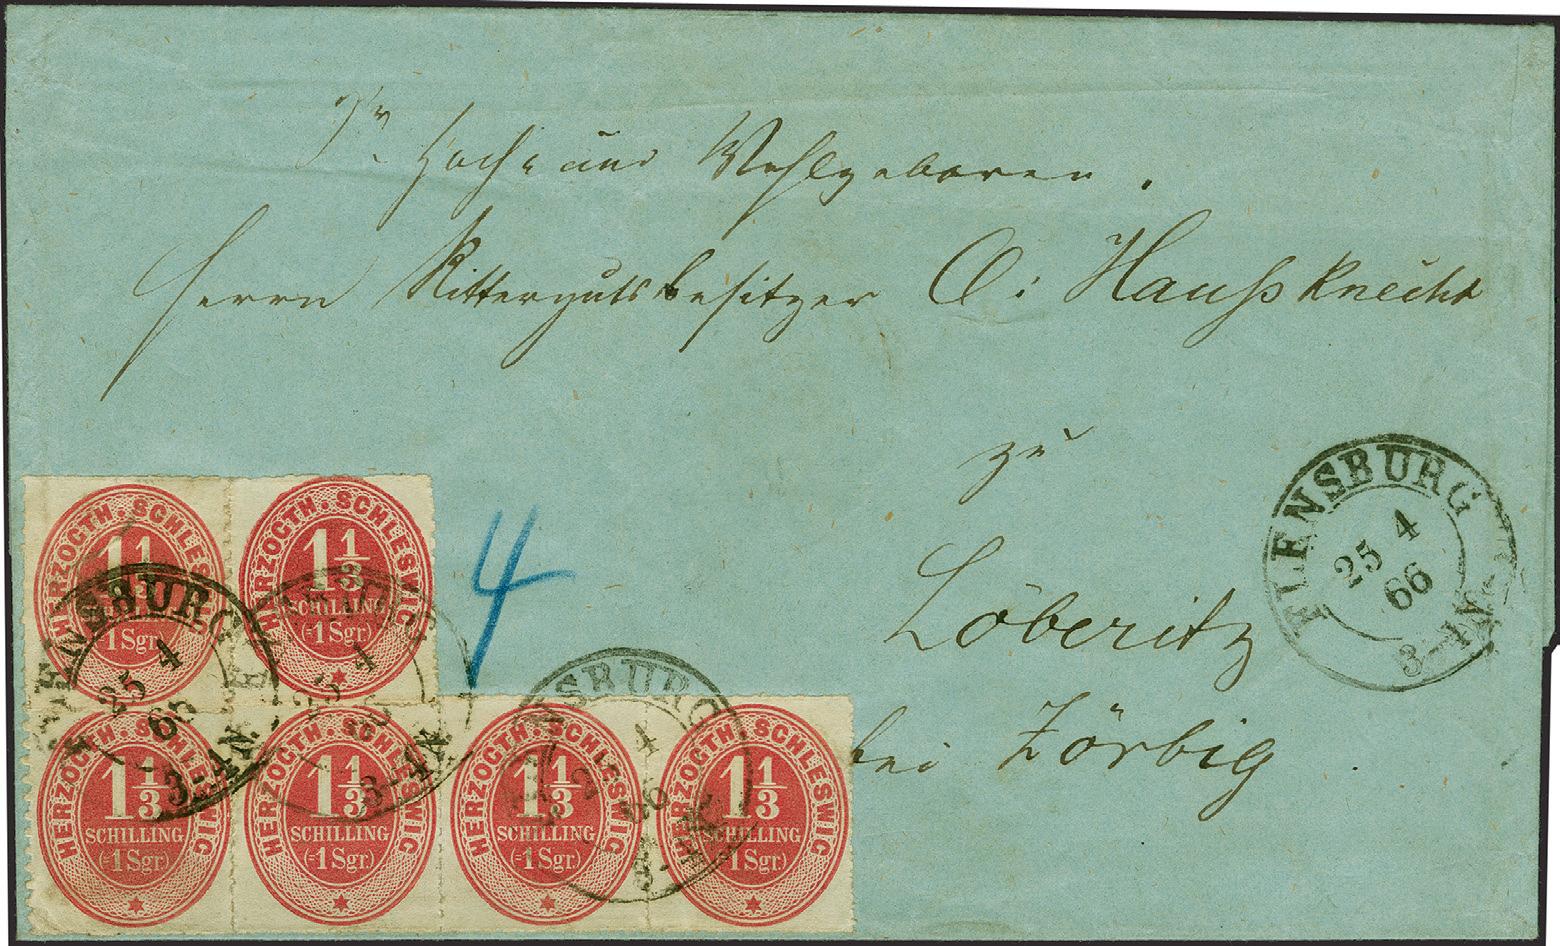 Sr. Hoch- und Wohlgeboren.
Herrn Rittergutsbesitzer O: Haußknecht
zu
Löberitz
bei Zörbig.
4
FLENSBURG
25 4
66
3-4N.
HERZOGTH. SCHLESWIG
1 1/3
(=1 Sgr.)
HERZOGTH. SCHLESWIG
1 1/3
SCHILLING
(=1 Sgr.)
FLENSBURG
25 4
66
3-4N.
25 4
3-4N.
HERZOGTH. SCHLESWIG
1 1/3
SCHILLING
(=1 Sgr.)
HERZOGTH. SCHLESWIG
1 1/3
SCHILLING
(=1 Sgr.)
HERZOGTH. SCHLESWIG
1 1/3
SCHILLING
(=1 Sgr.)
HERZOGTH. SCHLESWIG
1 1/3
SCHILLING
(=1 Sgr.)
FLENSBURG
4
66